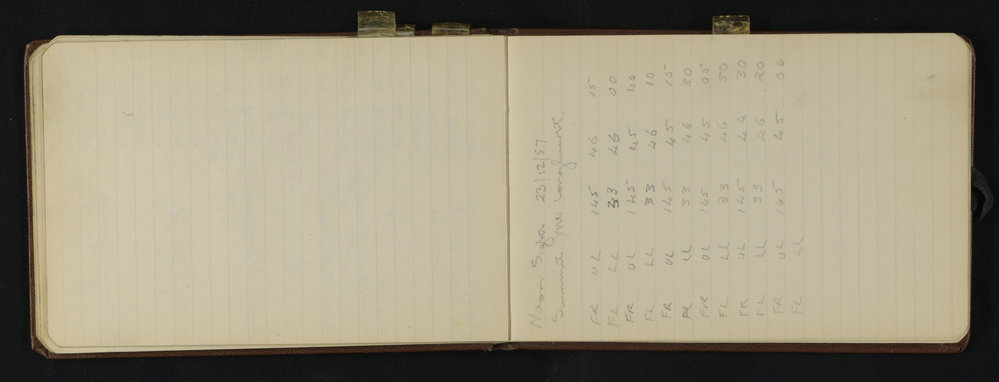 Moon S. 23/12/57
Summit Mt Longhurst.
FR UL 145 46 15
FL LL 33 46 00
FR UL 145 45 40
FL LL 33 46 10
FR UL 145 45 15
FL LL 33 46 30
FR UL 145 45 05
FL LL 33 46 50
FR UL 145 44 30
FL LL 33 46 20
FR UL 145 45 00
FL LL